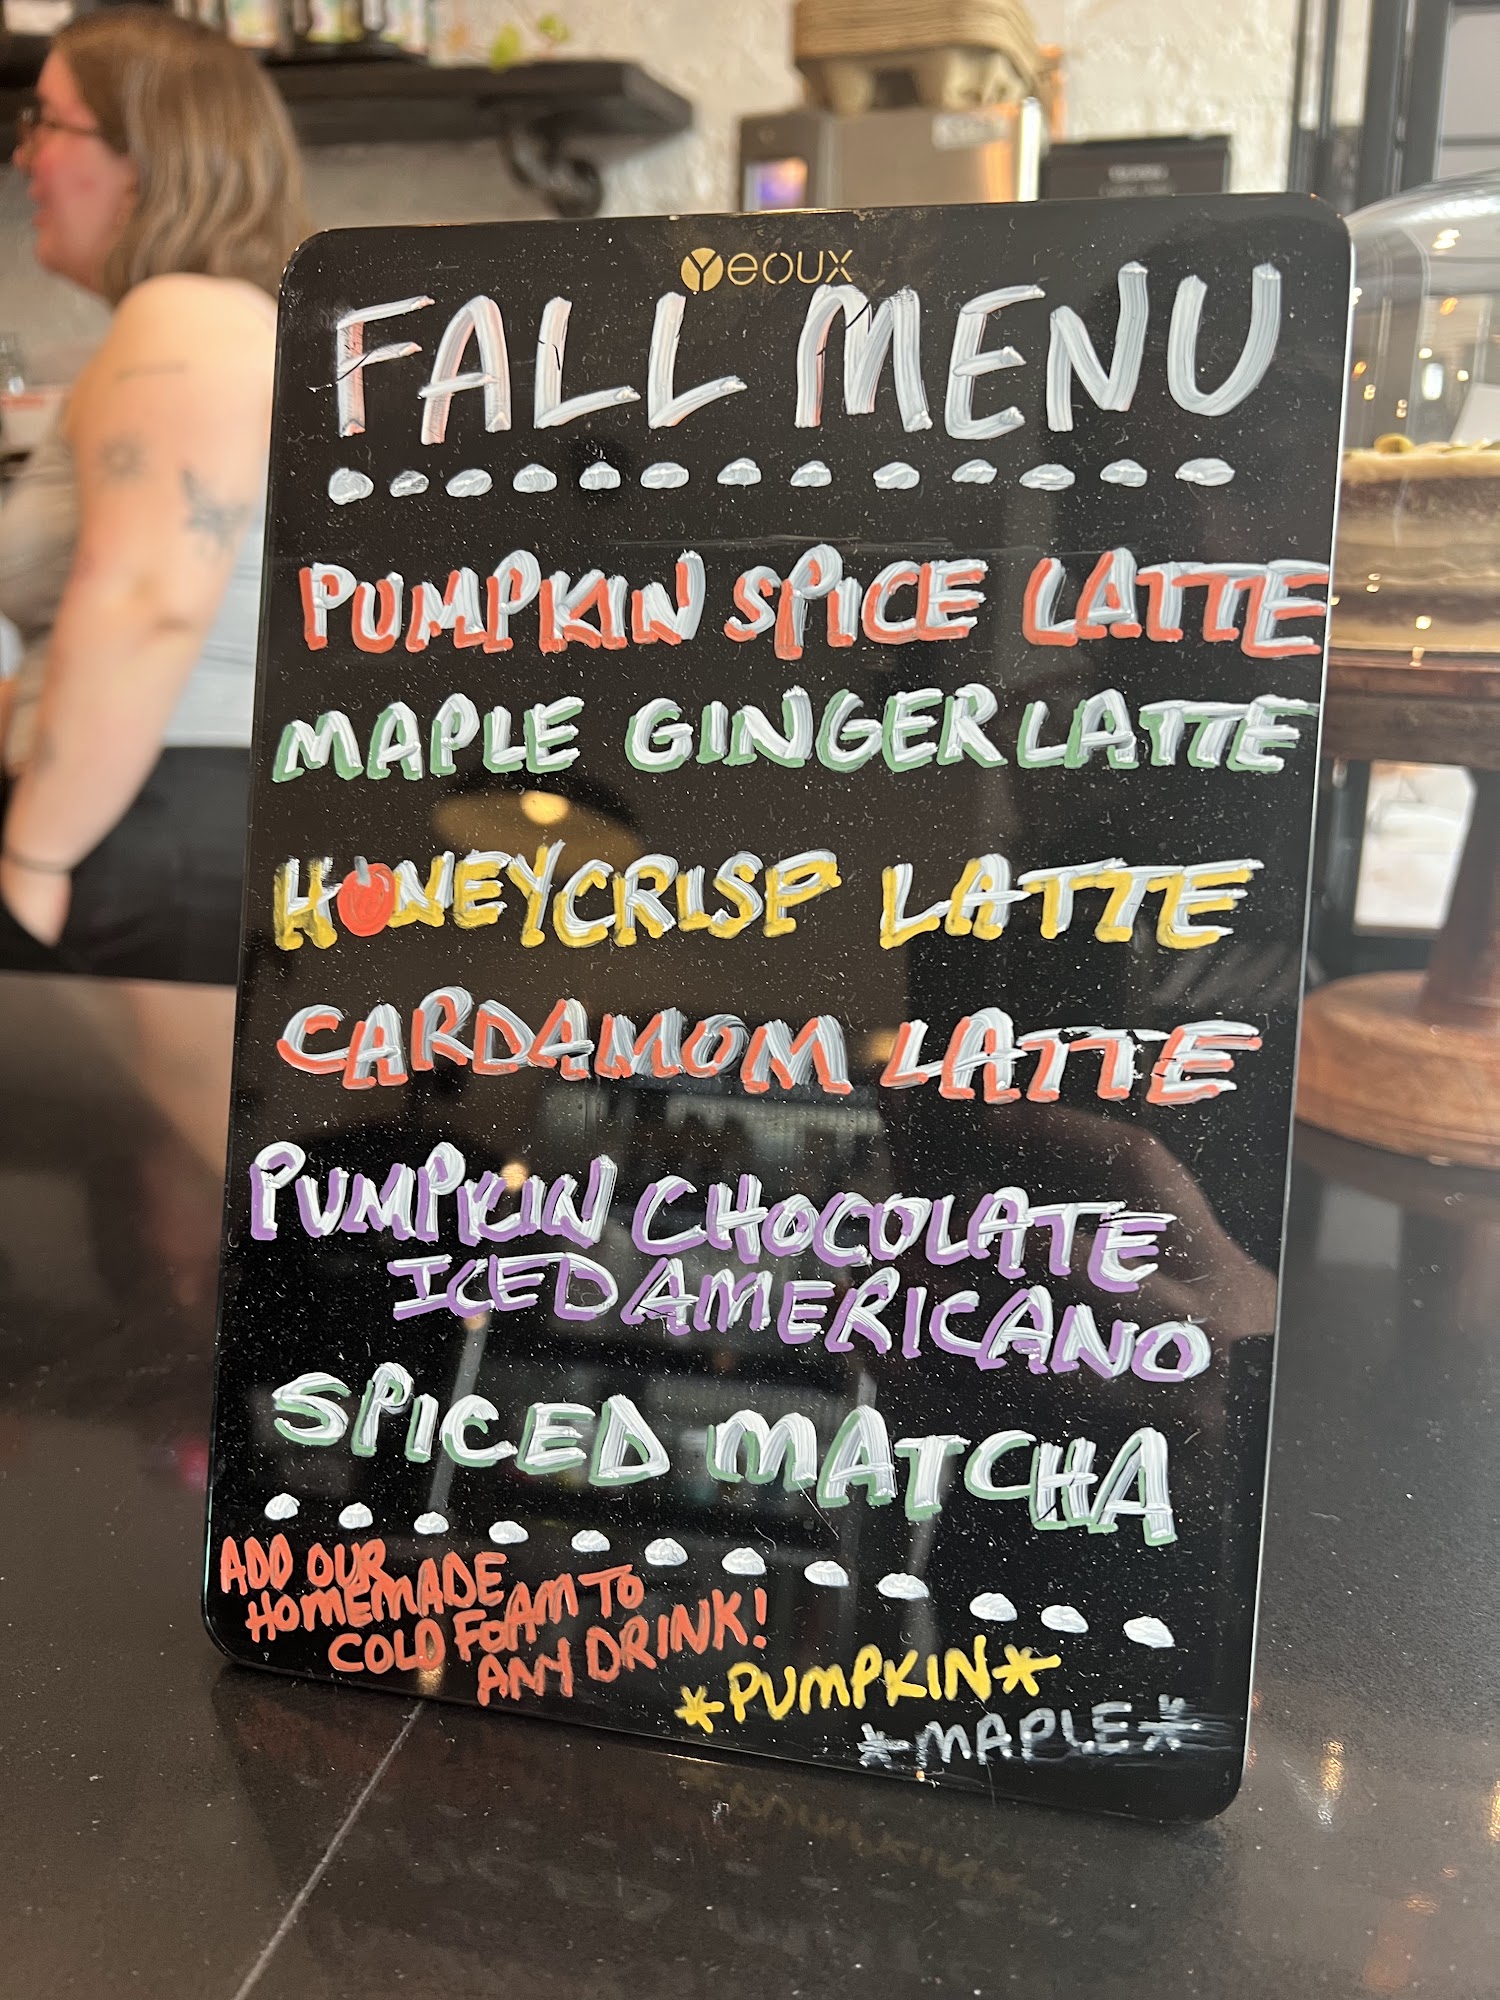 Yeoux
FALL MENU
PUMPKIN SPICE LATTE
MAPLE GINGER LATTE
HONEYCRISP LATTE
CARDAMOM LATTE
PUMPKIN CHOCOLATE
ICED AMERICANO
SPICED MATCHA
ADD OUR
HOMEMADE
COLD FOAM TO
ANY DRINK!
*PUMPKIN*
*MAPLE*